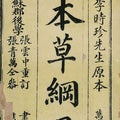 李時珍先生原本
本草綱目
蘇郡後學
張雲中重訂
張青萬仝參